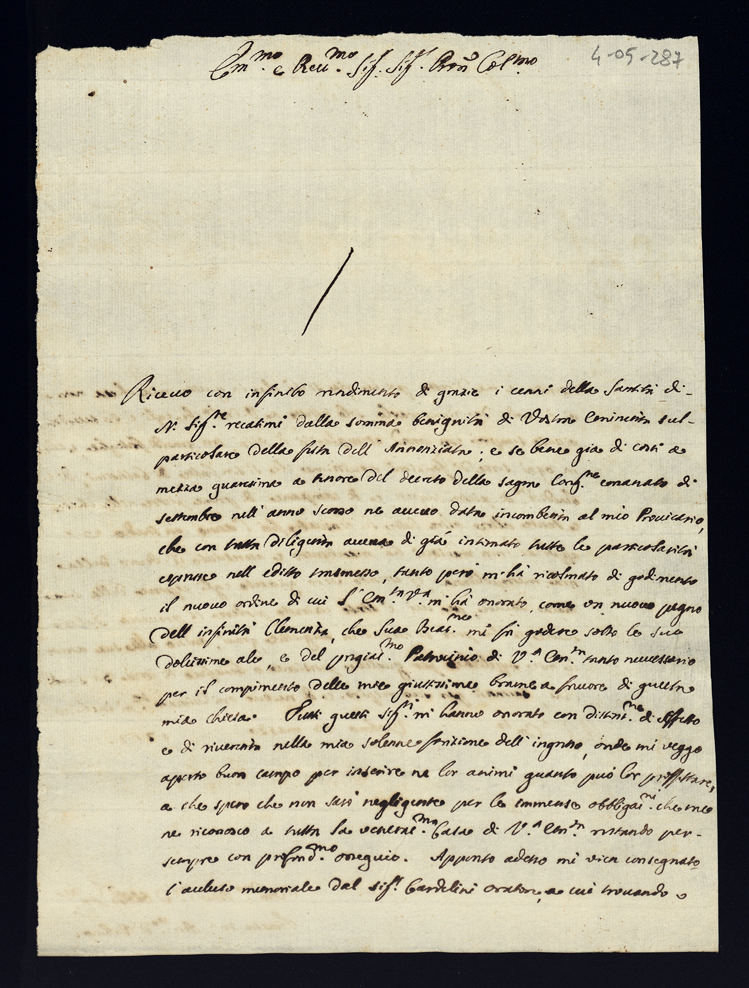 4-05-287
Em.mo e Reu.mo Sig. Sig. Pron Col.mo
Riceuo con infinito rendimento di grazie i cenni della Santità di
N. Sig.re recatimi dalla somma benignità di Vostra Eminenza sul-
particolare della festa dell'Annonziata; e se bene già di costì a
mezza quaresima a tenore del decreto della sagra Cong.ne emanato di
settembre nell'anno scorso ne aueuo data incombenza al mio Prouicario,
che con tutta diligenza aueua di già intimato tutte le particolarità
espresse nell'editto trasmesso, tanto però m'hà ricolmato di godimento
il nuouo ordine di cui l'Em.za V.a m'hà onorato, come un nuouo pegno
dell'infinita Clemenza, che Sua Beat.ne mi fà godere sotto le sue
dolcissime ale, e del pregiat.mo Patrocinio di V.a Em.za tanto necessario
per il compimento delle mie giustissime brame a fauore di questa
mia chiesa. Tutti questi Sig.ri m'hanno onorato con distint.ne di affetto
e di riuerenza nella mia solenne funzione dell'ingresso, onde mi veggo
aperto buon campo per inserire ne lor animi quanto può lor proffittare,
a che spero che non sarò negligente per le immense obbligaz.ni che me
ne riconosco a tutta la veneral.ma Casa di V.a Em.za restando per-
sempre con profond.mo ossequio. Appunto adesso mi vien consegnato
l'accluso memoriale dal Sig.r Gardelini oratore, a cui trouando